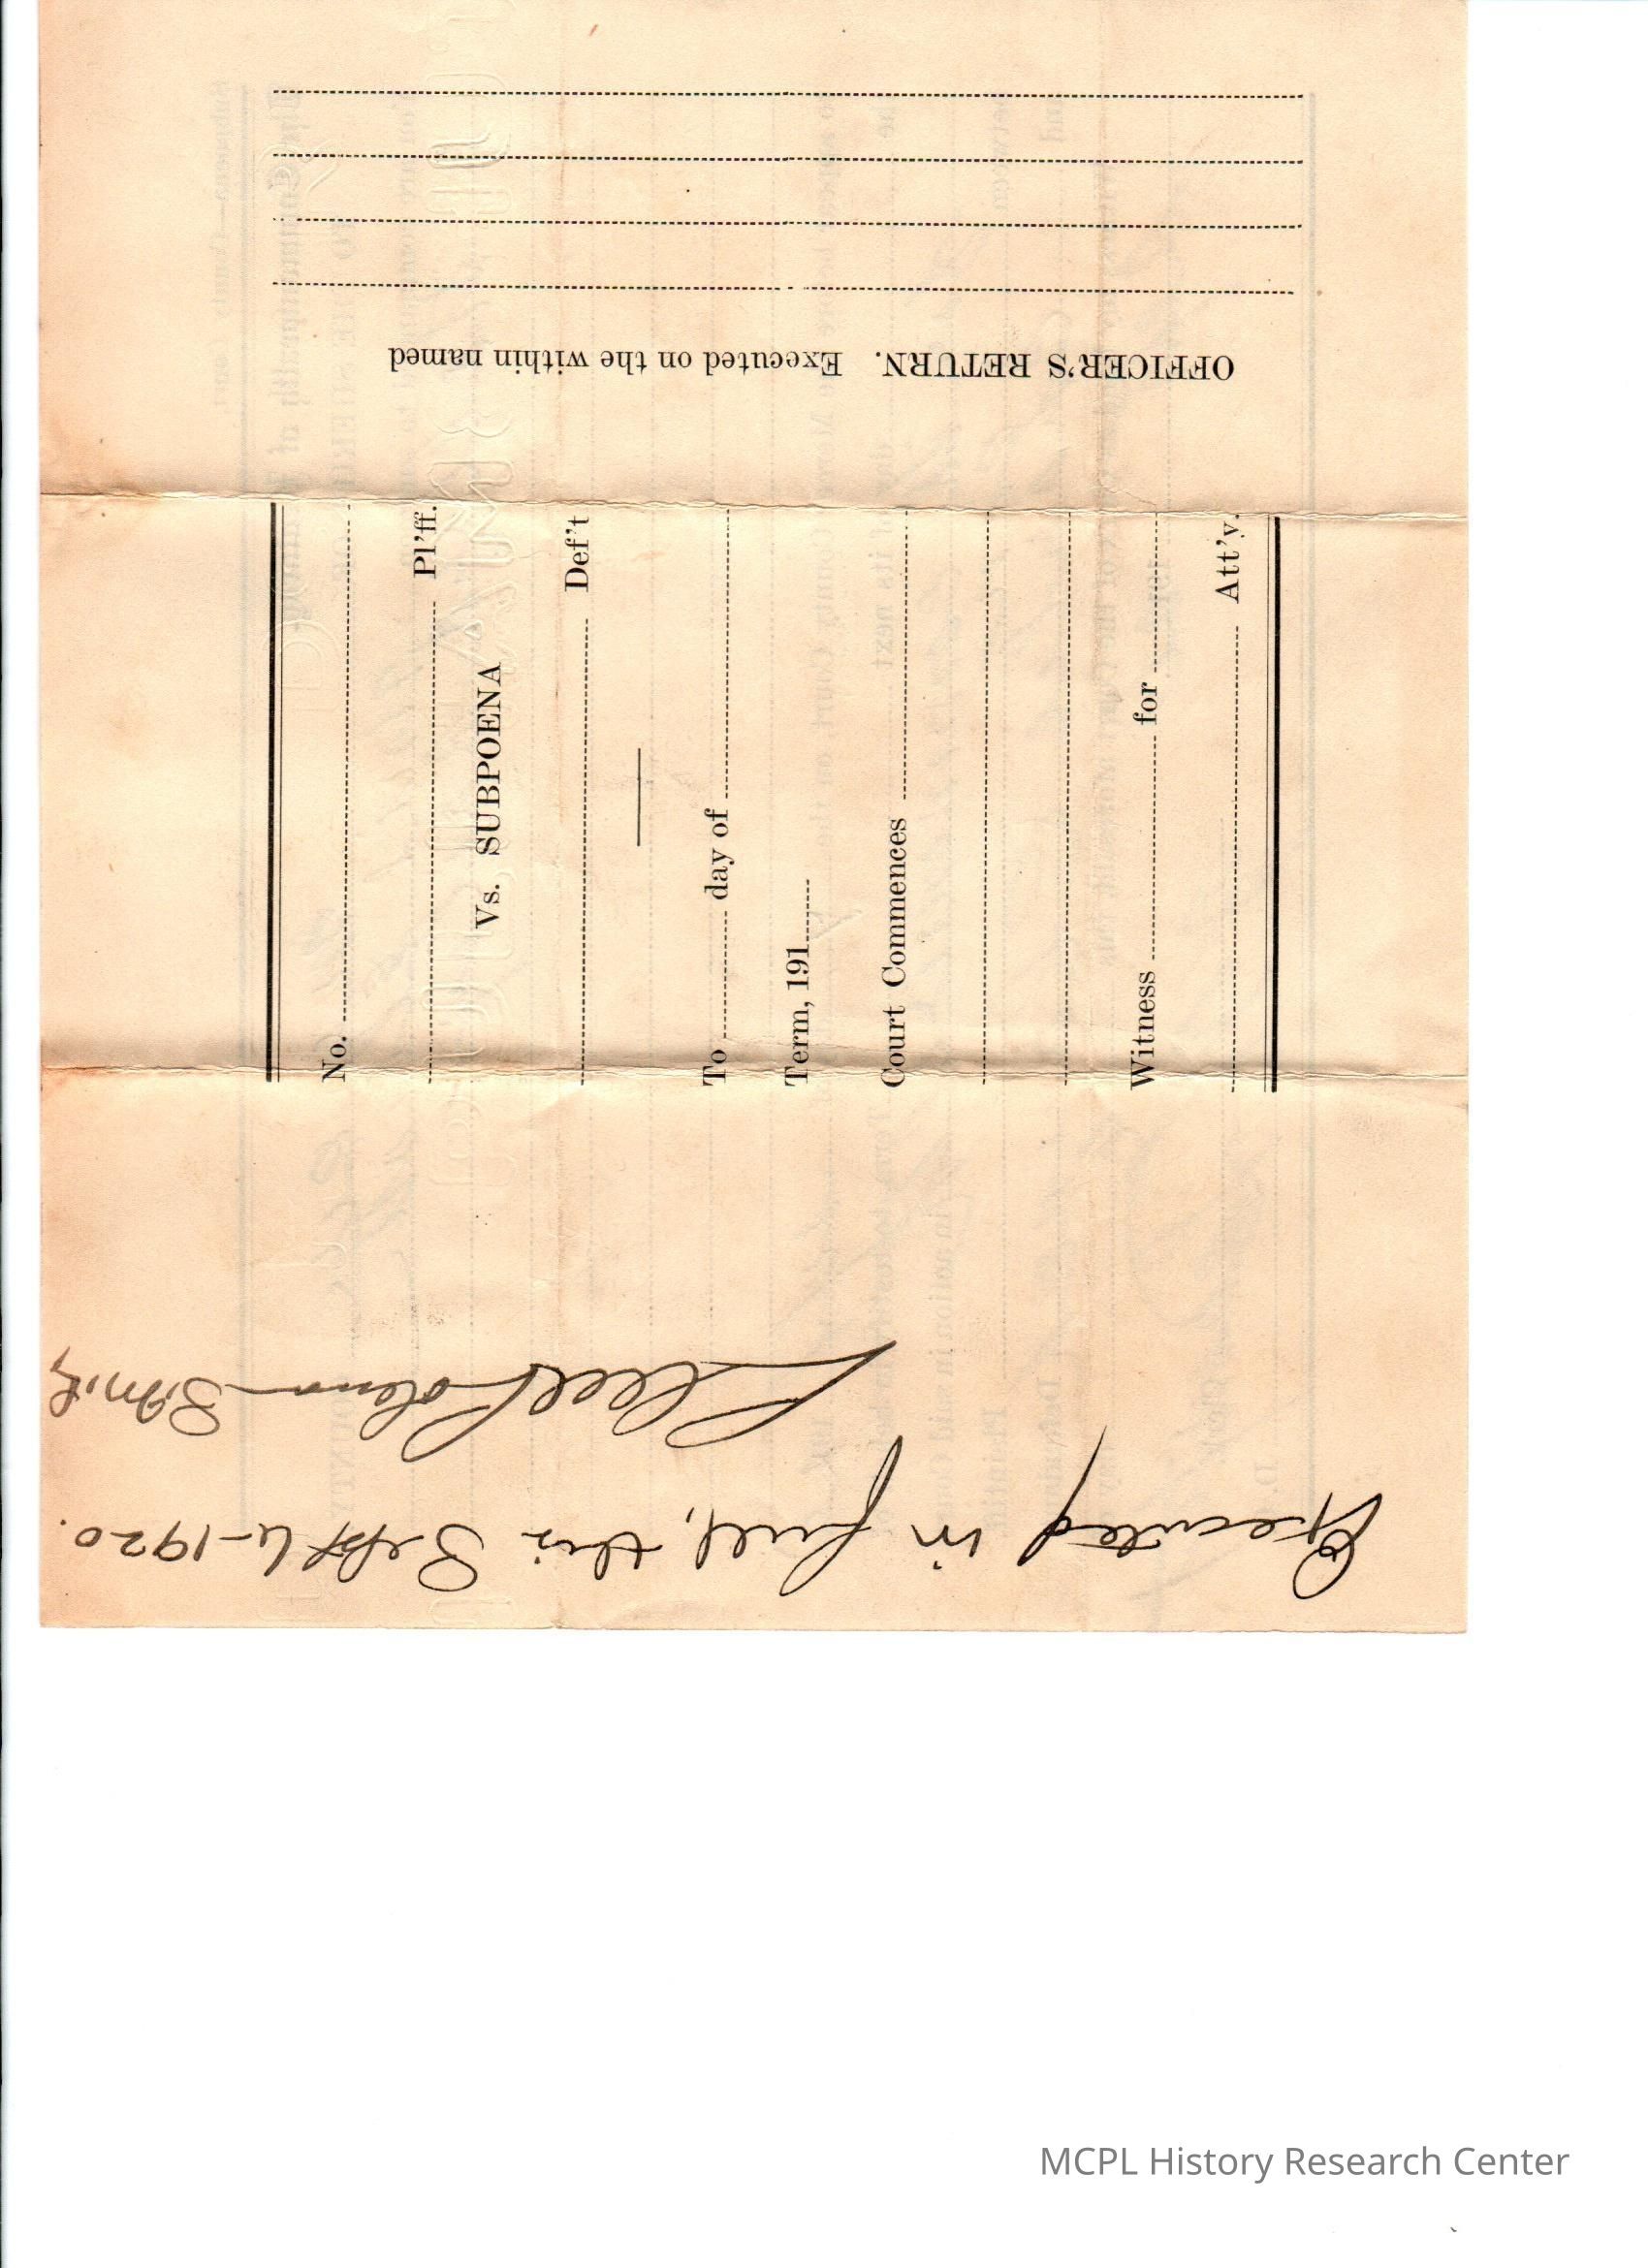 Executed in full, this Sept 4-1920.
OFFICER'S RETURN. Executed on the within named
No.
Pl'ff.
Vs. SUBPOENA
Def't
To day of
Term, 191
Court Commences
Witness for
Att'y.
MCPL History Research Center